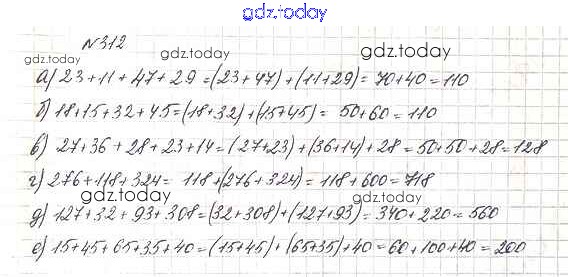 gdz.today
№312
gdz.today gdz.today
а) 23+11+47+29=(23+47)+(11+29)=70+40=110
б) 18+15+32+45=(18+32)+(15+45)= 50+60=110
в) 27+36+28+23+14=(27+23)+(36+14)+28=50+50+28=128
г) 276+118+324= 118+(276+324)=118+600=718
gdz.today gdz.today
д) 127+32+93+308=(32+308)+(127+93)=340+220=560
е) 15+45+65+35+40=(15+45)+(65+35)+40=60+100+40=200